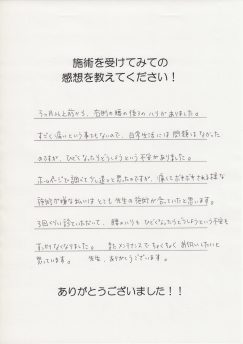 施術を受けてみての
感想を教えてください！
3ヶ月以上前から、右側の腰の後ろのハリがありました。
すごく痛いという事でもないので、日常生活には問題はなかった
のですが、ひどくなったらどうしようという不安がありました。
ホームページで調べて少し迷ったのですが、痛くてボキボキされる様な
施術が嫌な私には とても先生の施術が合っていたと思います。
3回ぐらい診ていただいて、腰のハリも ひどくなったらどうしようという不安も
すっかりなくなりました。 またメンテナンスでちょくちょく お伺いしたいと
思っています。 先生、ありがとうございます。
ありがとうございました！！